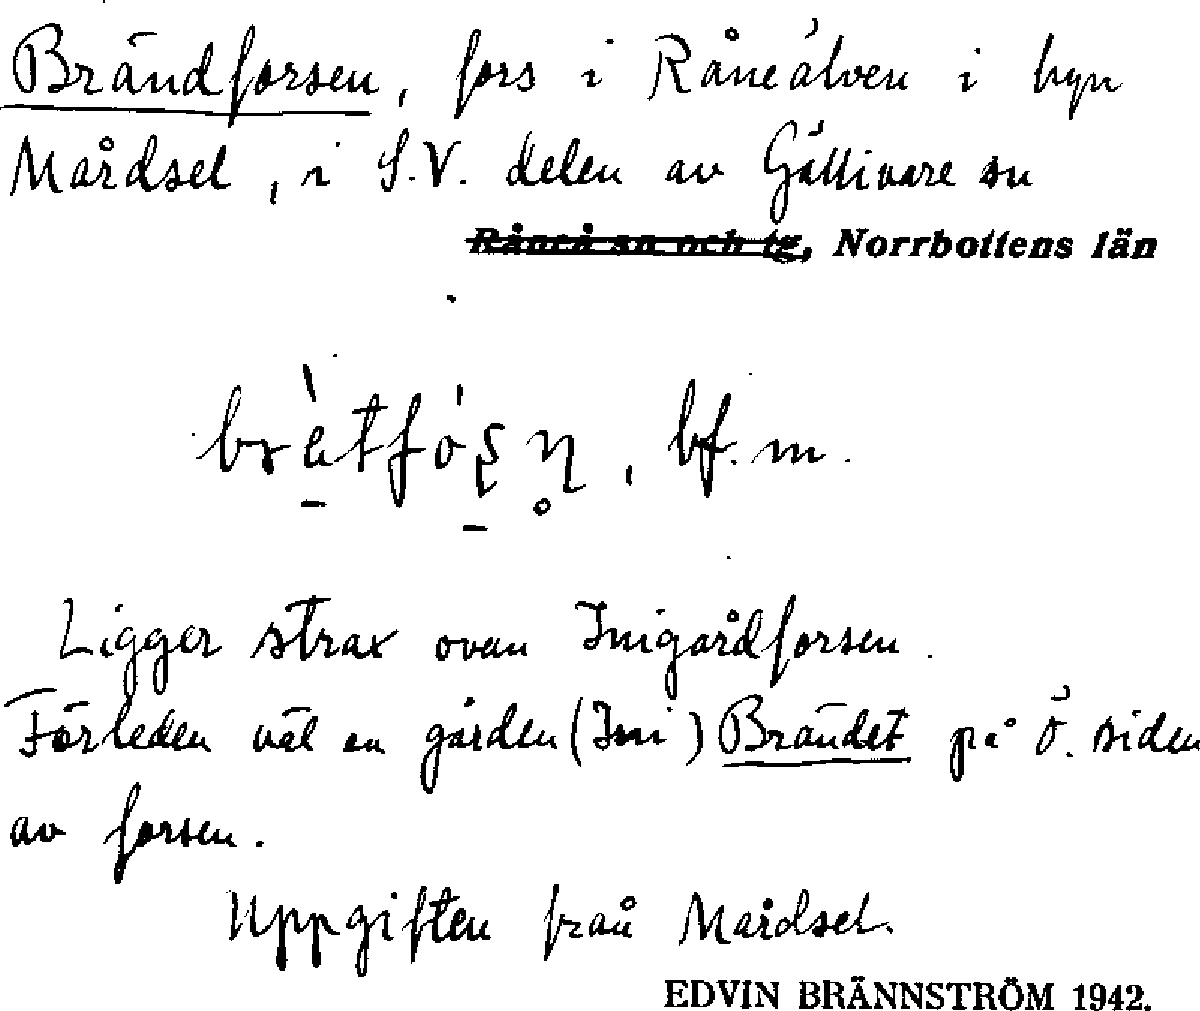 Brändforsen, fors i Råneälven i byn
Mårdsel, i S.V. delen av Gällivare sn
Råneå sn och tg, Norrbottens län
bf. m.
Ligger strax ovan Inigårdforsen.
Förleden väl en gården (Ini) Brändet på ö. siden
av forsen.
Uppgiften från Mårdsel.
EDVIN BRÄNNSTRÖM 1942.